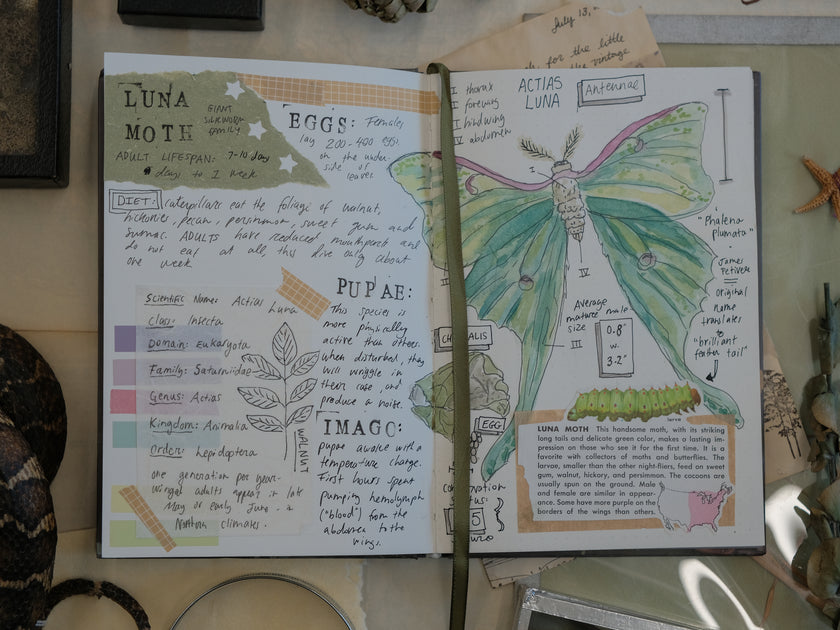 July 13,
for the little
the vintage
LUNA
MOTH
GIANT
SILKWORM
FAMILY
ADULT LIFESPAN: 7-10 day
days to 1 week
EGGS: Females
lay 200-400 eggs
on the under-
side of
leaves
DIET: Caterpillars eat the foliage of walnut,
hickories, pecan, persimmon, sweet gum and
sumac. ADULTS have reduced mouthparts and
do not eat at all, thus live only about
one week
Scientific Name: Actias Luna
Class: Insecta
Domain: Eukaryota
Family: Saturniidae
Genus: Actias
Kingdom: Animalia
Order: Lepidoptera
one generation per year.
Winged adults appear in late
May or early June in
Northern climates.
WALNUT
PUPAE:
This species is
more physically
active than others.
when disturbed, they
will wriggle in
their case, and
produce a noise.
IMAGO:
pupae awake with a
temperature change.
First hours spent
pumping hemolymph
("blood") from the
abdomen to the
wings.
I thorax
II forewing
III hindwing
IV abdomen
ACTIAS
LUNA
Antennae
I
IV
III
"Phalena
plumata"
-
James
Petiver
Original
name
translates
to
"brilliant
feather tail"
Average
mature male
size
0.8"
w.
3.2"
CHRYSALIS
EGG
LUNA MOTH This handsome moth, with its striking
long tails and delicate green color, makes a lasting im-
pression on those who see it for the first time. It is a
favorite with collectors of moths and butterflies. The
larvae, smaller than the other night-fliers, feed on sweet
gum, walnut, hickory, and persimmon. The cocoons are
usually spun on the ground. Male
and female are similar in appear-
ance. Some have more purple on the
borders of the wings than others.